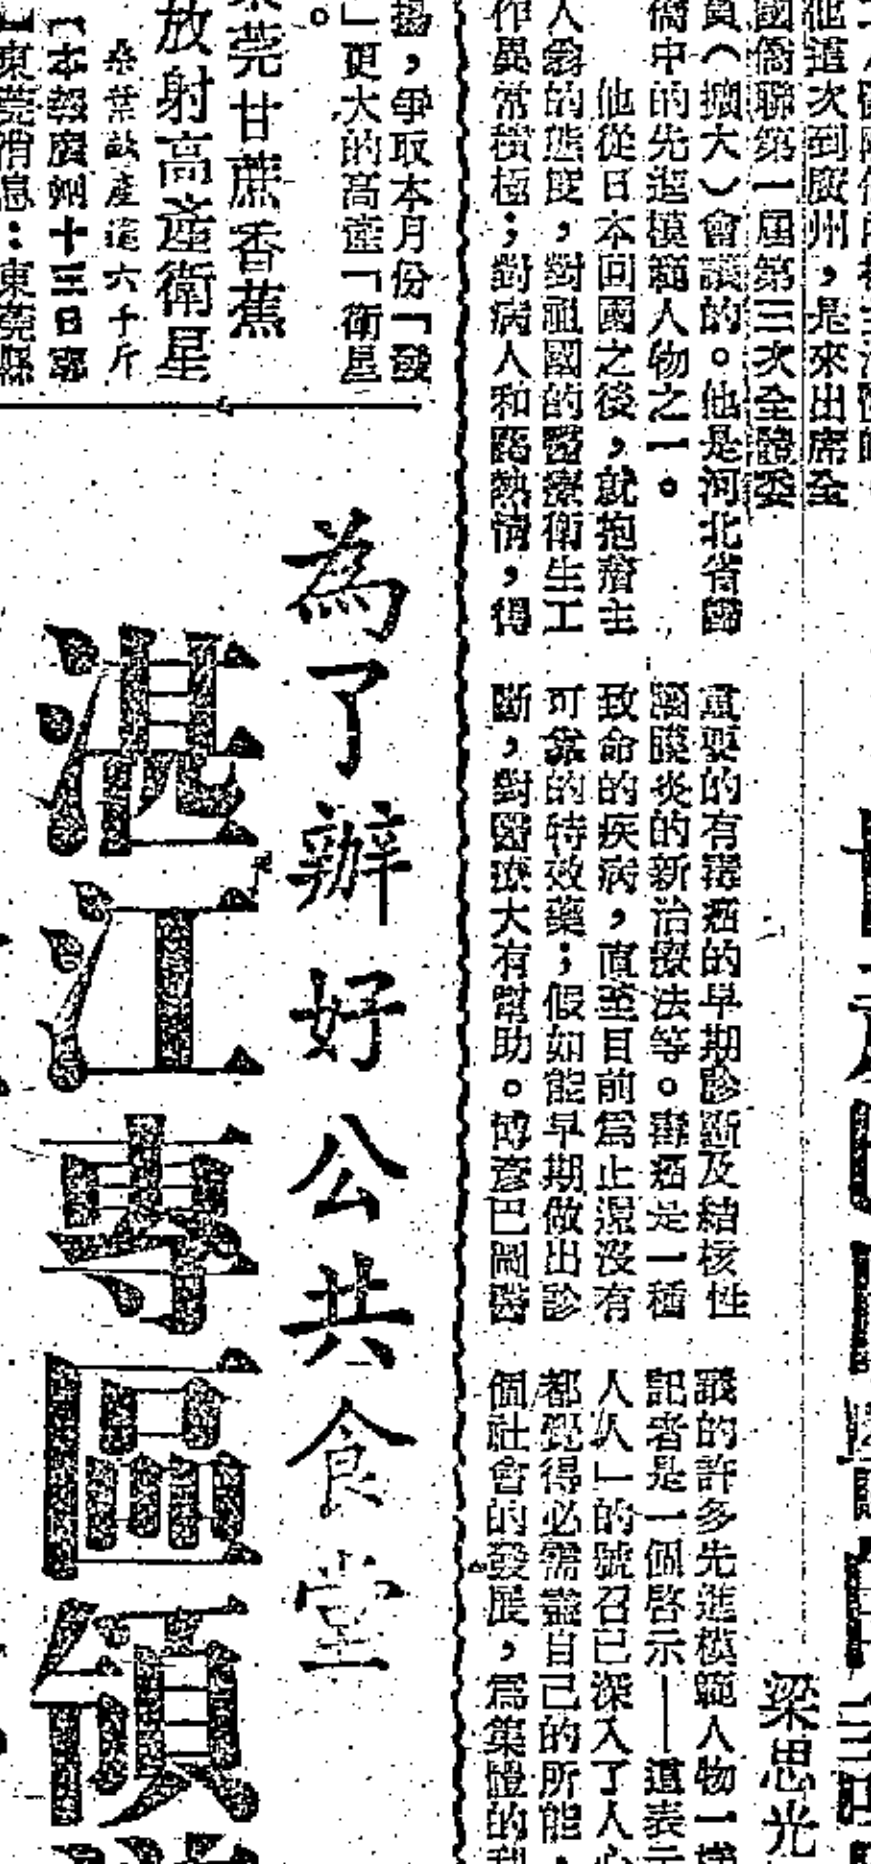 他這次到廣州，是來出席全
國僑聯第一屆第三次全體委
員（擴大）會議的。他是河北省歸
僑中的先進模範人物之一。
他從日本回國之後，就抱着主
人翁的態度，對祖國的醫療衛生工
作異常積極；對病人和藹熱情，得
重要的有毒癌的早期診斷及結核性
腦膜炎的新治療法等。毒癌是一種
致命的疾病，直至目前爲止還沒有
可靠的特效藥；假如能早期做出診
斷，對醫療大有幫助。博彥巴圖醫
的許多先進模範人物一樣
記者是一個啓示——這表示
人人」的號召已深入了人心
都覺得必需盡自己的所能，
個社會的發展，爲集體的利
梁思光
揚，爭取本月份「發
」更大的高產「衛星
。
東莞甘蔗香蕉
放射高產衛星
桑葉畝產達六千斤
【本報廣州十三日專
】東莞消息：東莞縣
為了辦好公共食堂
湛江專區領